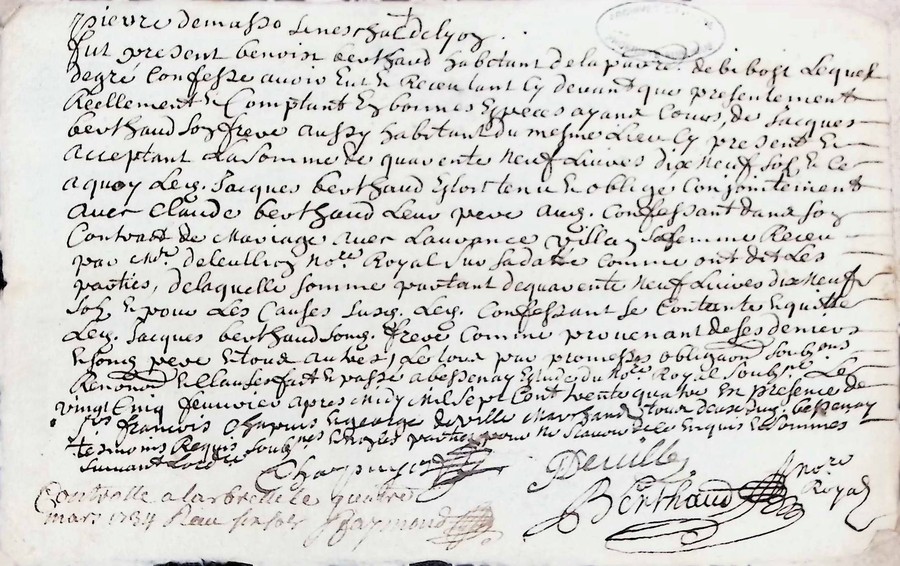 pierre demasso seneschal de lyon
fut present benoist berthaud habitant de la parr. de bibost Lequel
degré Confesse avoir Eut et Receu tant Cy devant que presentement
Reellement et Comptant En bonnes Especes ayant Cours, de Jacques
berthaud Son frere aussy habitant du mesme Lieu Cy present et
acceptant La Somme de quarente neuf Livres dix neuf sols et ce
a quoy Led. Jacques berthaud Estoit tenu et obligé Conjointement
avec Claude berthaud Leur pere aud. Confessant dans son
Contract de Mariage avec Laurance villa sa femme Receu
par Me. No.re Royal Sur Sa datte comme ont dit Les
parties, de laquelle somme partant de quarente neuf Livres dix neuf
Sols Et pour Les Causes Susd. Led. Confessant se Contente Et quitte
Led. Jacques berthaud Sond. frere Comme provenant de ses deniers
Et Sond. pere Et tous autres, Le tout par promesses obligaons Soubons
Renonons Et Clauses fait Et passé a bessenay Estude du No.re Royal Soubsé. Le
vingt Cinq fevrier apres midy Mil Sept Cent trente quatre En presence de
Srs francois Chapuis Et george deville Marchands tous deux dud. bessenay
tesmoins Requis Soubnés Et non Les parties pour ne Scavoir de ce Enquis Et Sommés
Suivant Lordce
Chapuis
Deville
Berthaud nore
Royal
Controllé a larbrelle le quatre
mars 1734 Receu six sols Raymond